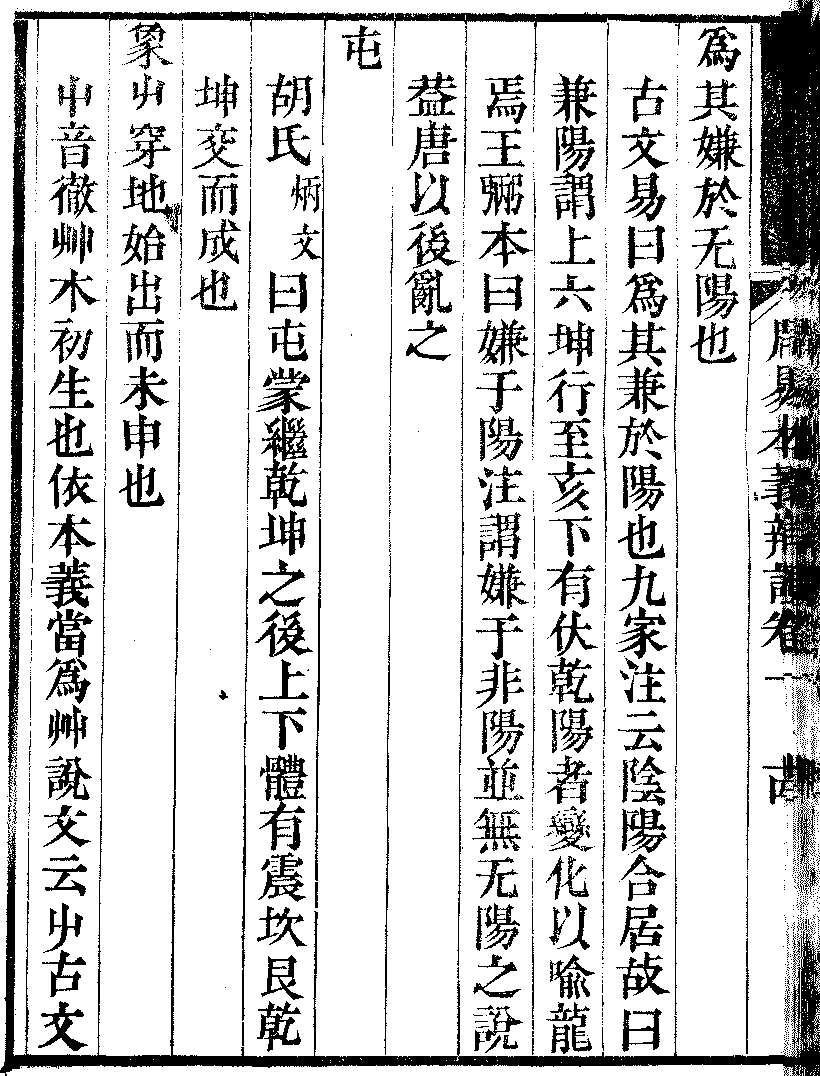 周易本義辨證卷一 古
爲其嫌於无陽也
古文易曰爲其兼於陽也九家注云陰陽合居故曰
兼陽謂上六坤行至亥下有伏乾陽者變化以喻龍
焉王弼本曰嫌于陽注謂嫌于非陽並無无陽之說
葢唐以後亂之
屯
胡氏炳文曰屯蒙繼乾坤之後上下體有震坎艮乾
坤交而成也
象屮穿地始出而未申也
屮音徹艸木初生也依本義當爲艸說文云屮古文